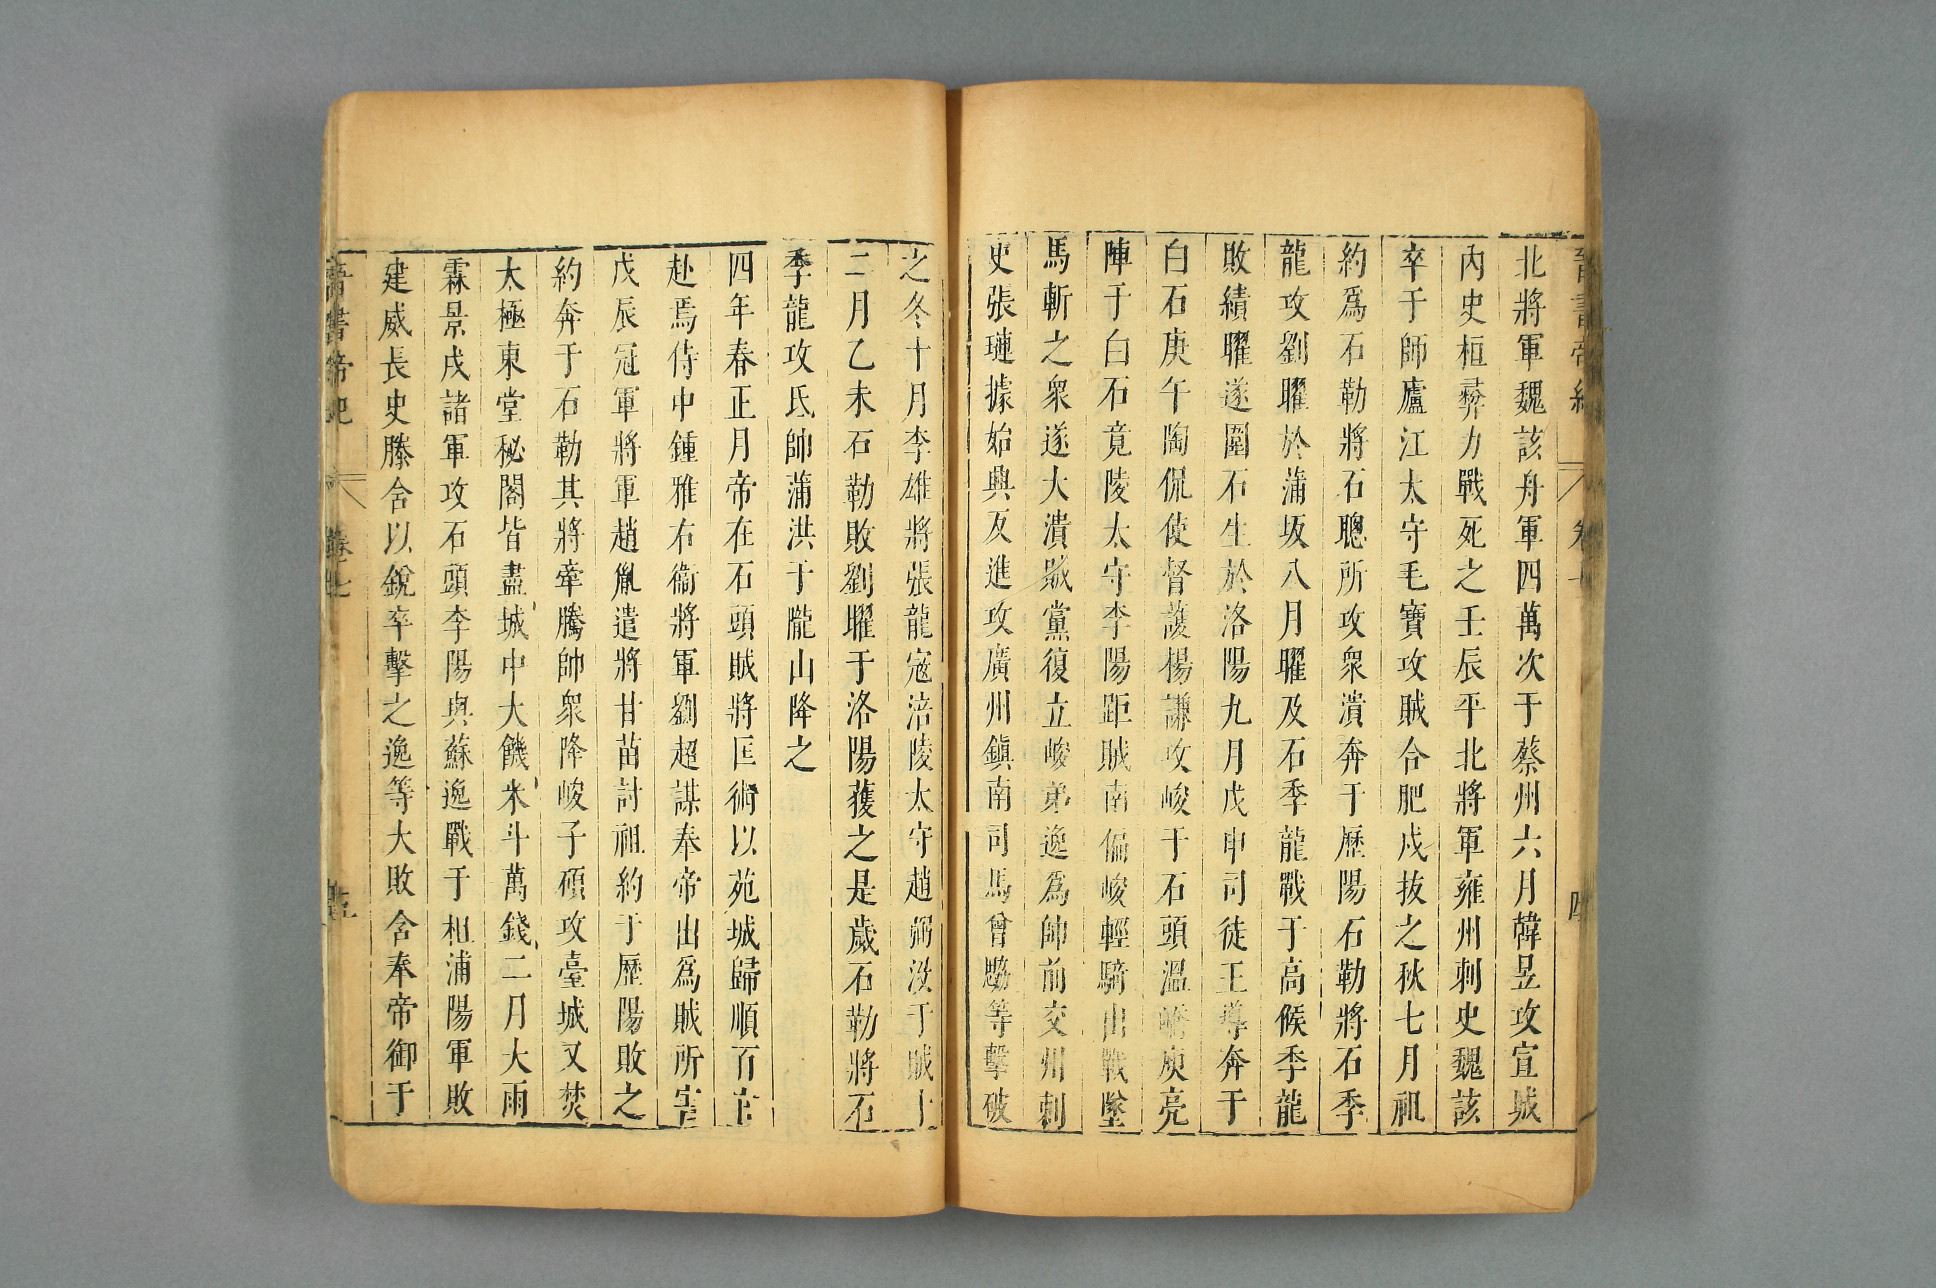 晉書帝紀 卷七 四
北將軍魏該舟軍四萬次于蔡州六月韓晃攻宣城
內史桓彝力戰死之壬辰平北將軍雍州刺史魏該
卒于師廬江太守毛寶攻賊合肥戍拔之秋七月祖
約爲石勒將石聰所攻衆潰奔于歷陽石勒將石季
龍攻劉曜於蒲坂八月曜及石季龍戰于高候季龍
敗績曜遂圍石生於洛陽九月戊申司徒王導奔于
白石庚午陶侃使督護楊謙攻峻于石頭溫嶠庾亮
陣于白石竟陵太守李陽距賊南偏峻輕騎出戰墜
馬斬之衆遂大潰賊黨復立峻弟逸爲帥前交州刺
史張璉據始興反進攻廣州鎮南司馬曾勰等擊破
之冬十月李雄將張龍寇涪陵太守趙弼沒于賊十
二月乙未石勒敗劉曜于洛陽獲之是歲石勒將石
季龍攻氐帥蒲洪于隴山降之
四年春正月帝在石頭賊將匡術以苑城歸順百官
赴焉侍中鍾雅右衞將軍劉超謀奉帝出爲賊所害
戊辰冠軍將軍趙胤遣將甘苗討祖約于歷陽敗之
約奔于石勒其將牽騰帥衆降峻子碩攻臺城又焚
太極東堂秘閣皆盡城中大饑米斗萬錢二月大雨
霖景戌諸軍攻石頭李陽與蘇逸戰于柤浦陽軍敗
建威長史滕含以銳卒擊之逸等大敗含奉帝御于
晉書帝紀 卷七 五